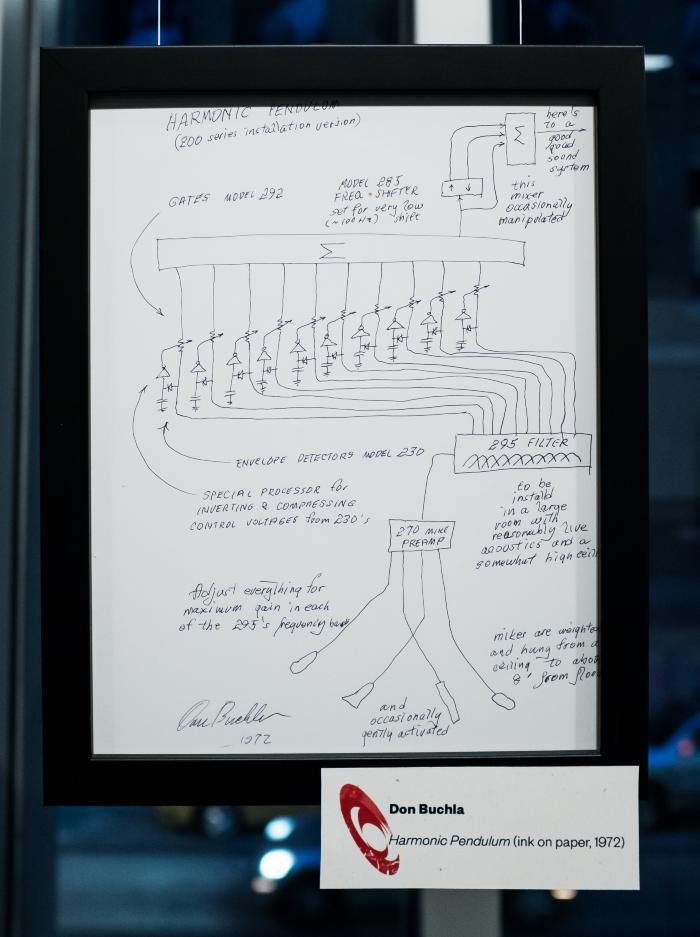 HARMONIC PENDULUM
(200 series installation version)
here's
to a
good
quad
sound
system
Σ
MODEL 285
FREQ. SHIFTER
set for very low
(~100 Hz) shift
GATES MODEL 292
this
mixer
occasionally
manipulated
Σ
295 FILTER
ENVELOPE DETECTORS MODEL 230
SPECIAL PROCESSOR for
INVERTING & COMPRESSING
CONTROL VOLTAGES from 230's
270 MIKE
PREAMP
to be
installd
in a large
room with
reasonably live
acoustics and a
somewhat high ceili
Adjust everything for
maximum gain in each
of the 295's frequency bands
mikes are weighted
and hung from a
ceiling to about
8' from floor
and
occasionally
gently activated
Don Buchla
1972
Don Buchla
Harmonic Pendulum (ink on paper, 1972)